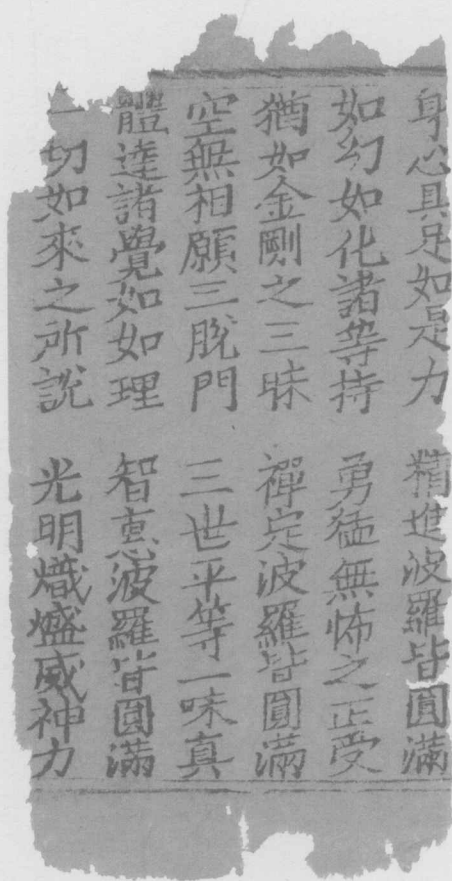 身心具足如是力　精進波羅皆圓滿
如幻如化諸等持　勇猛無怖之正受
猶如金剛之三昧　禪定波羅皆圓滿
空無相願三脫門　三世平等一味真
體達諸覺如如理　智惠波羅皆圓滿
一切如來之所說　光明熾盛威神力